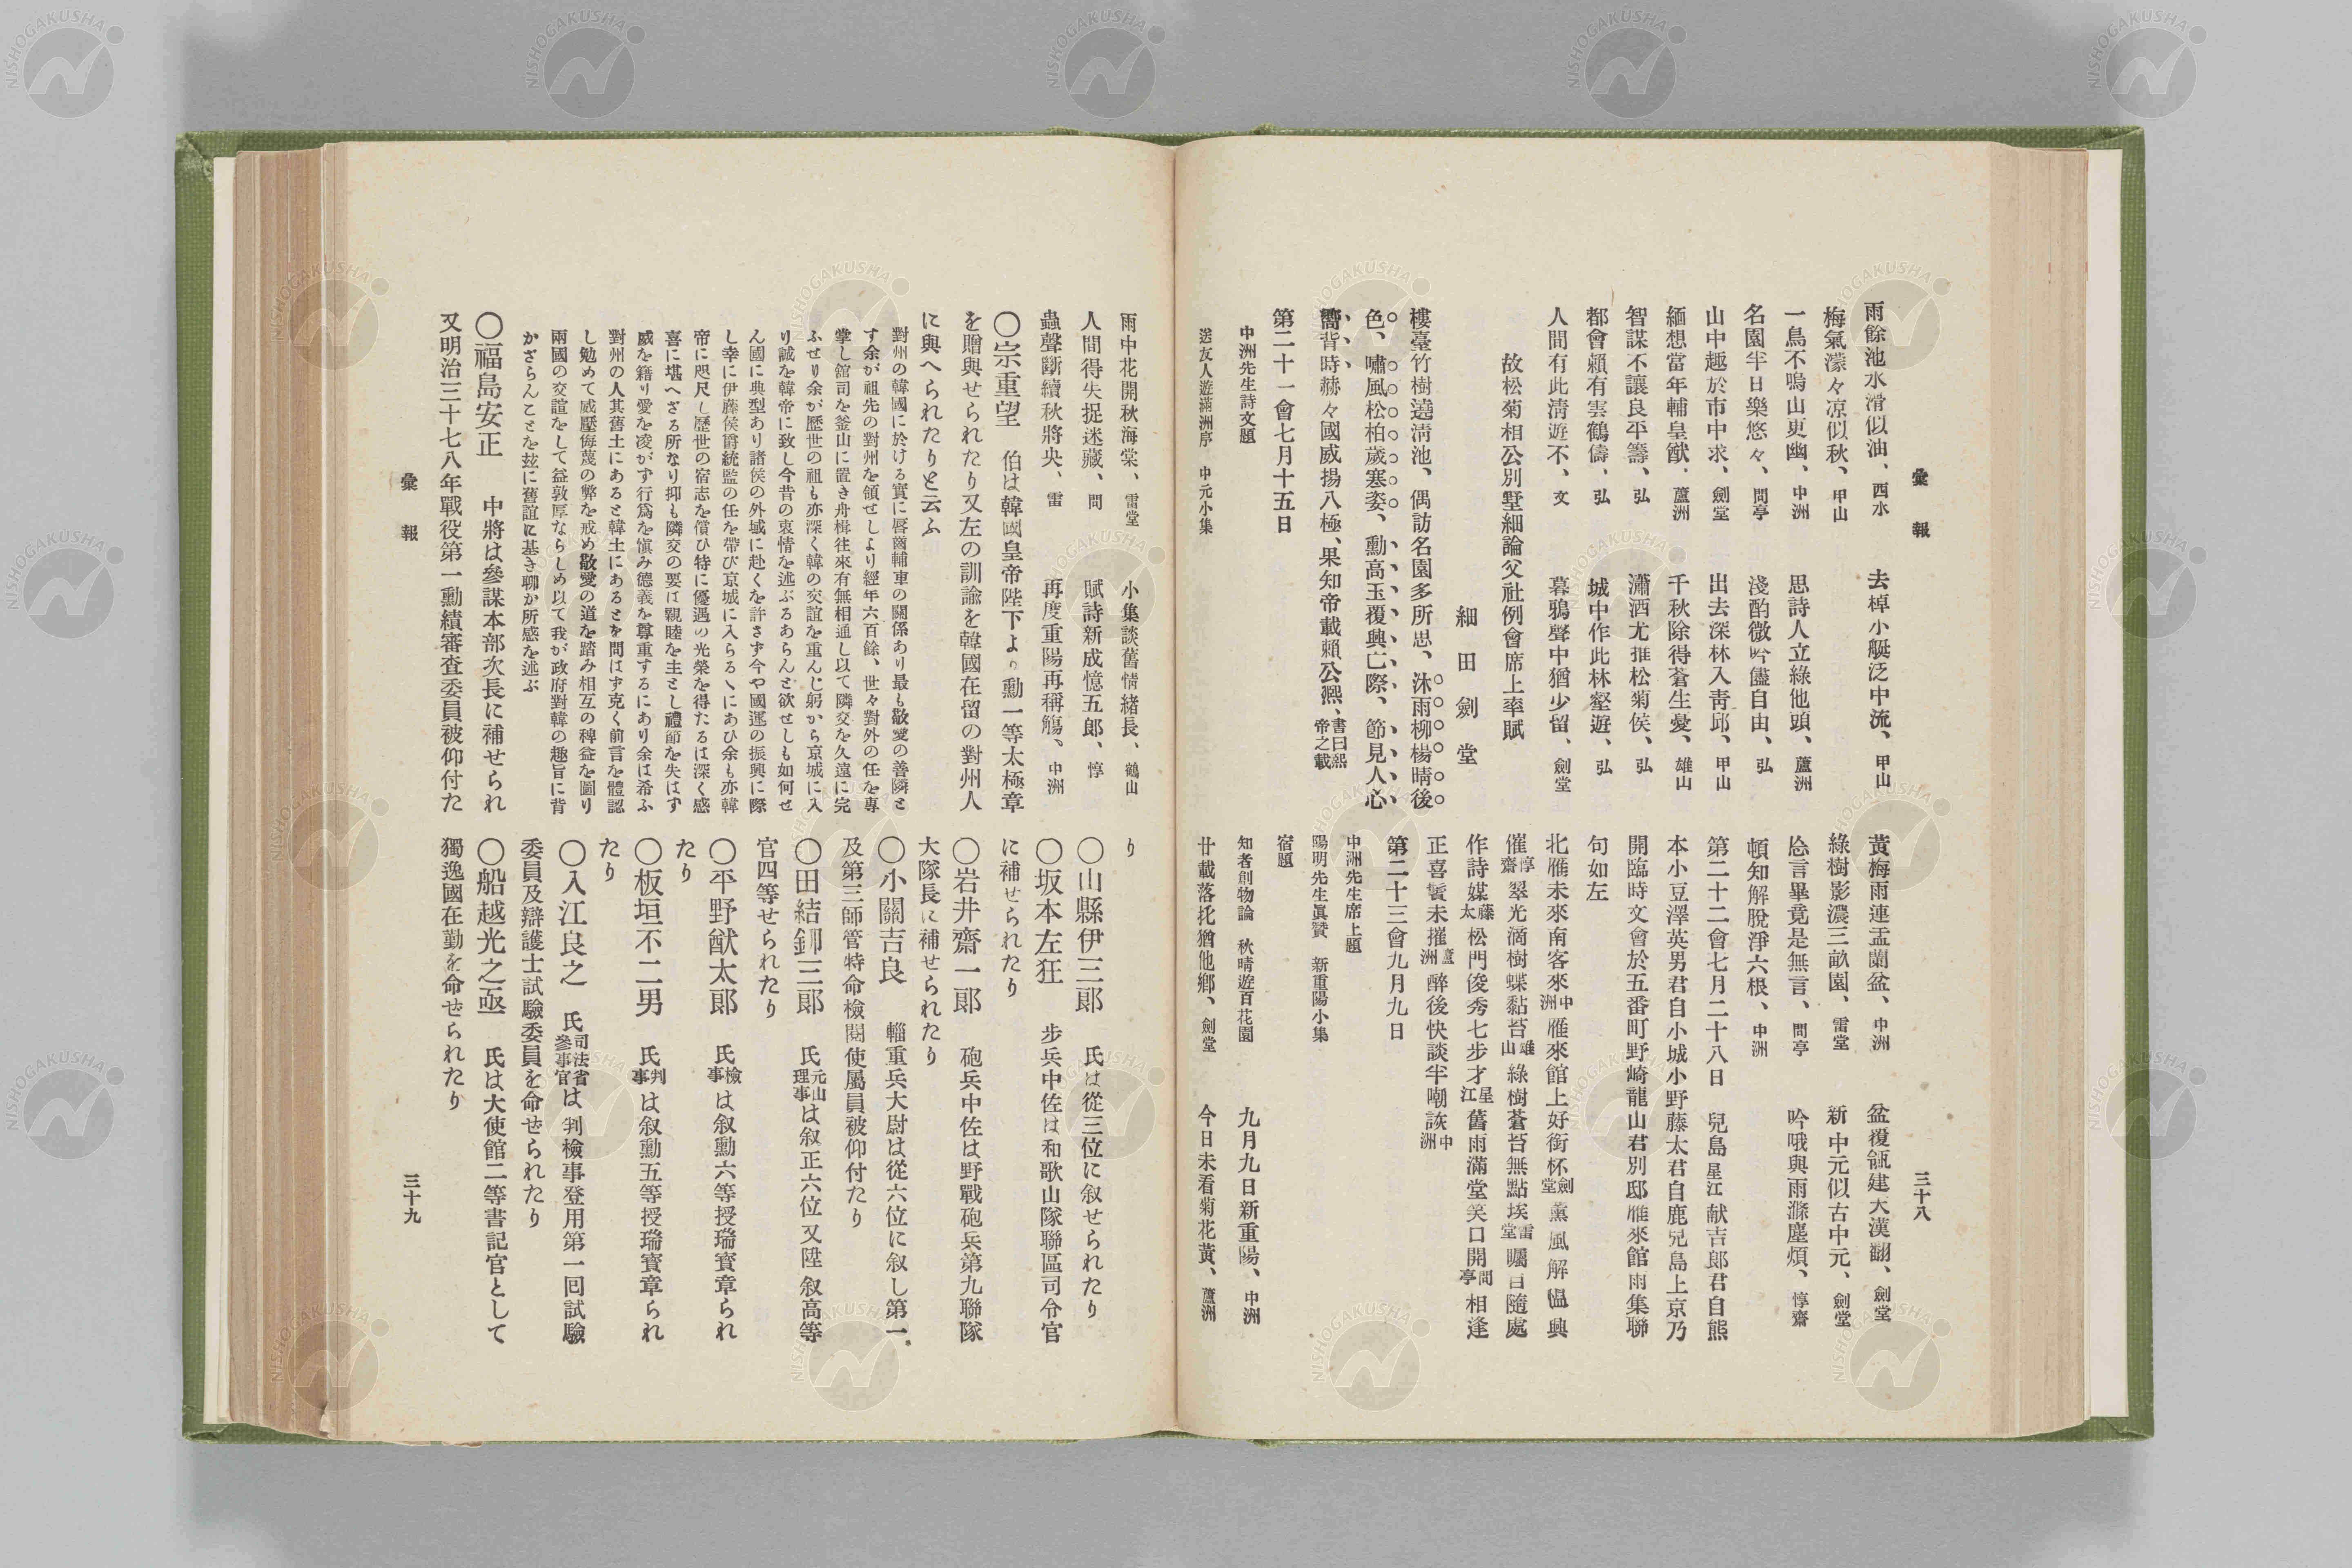 彙報
三十八
雨餘池水滑似油、西水
去棹小艇泛中流、甲山
梅氣濛々凉似秋、甲山
一鳥不鳴山更幽、中洲
思詩人立綠他頭、蘆洲
名園半日樂悠々、問亭
淺酌微吟儘自由、弘
山中趣於市中求、劍堂
出去深林入靑邱、甲山
緬想當年輔皇猷、蘆洲
千秋除得蒼生憂、雄山
智謀不讓良平籌、弘
瀟洒尤推松菊侯、弘
都會賴有雲鶴儔、弘
城中作此林壑遊、弘
人間有此淸遊不、文
暮鴉聲中猶少留、劍堂
故松菊相公別墅細論父社例會席上率賦
細田劍堂
樓臺竹樹遶淸池、偶訪名園多所思、沐雨柳楊晴後
色、嘯風松柏歲寒姿、勳高玉覆興亡際、節見人心
嚮背時赫々國威揚八極、果知帝載賴公凞、書曰凞帝之載
第二十一會七月十五日
中洲先生詩文題
送友人遊滿洲序　中元小集
黃梅雨連盂蘭盆、中洲
盆覆瓴建天漢翻、劍堂
綠樹影濃三畝園、雷堂
新中元似古中元、劍堂
忩言畢竟是無言、問亭
吟哦與雨滌塵煩、惇齋
頓知解脫淨六根、中洲
第二十二會七月二十八日　兒島星江献吉郎君自熊
本小豆澤英男君自小城小野藤太君自鹿兒島上京乃
開臨時文會於五番町野崎龍山君別邸雁來館雨集聯
句如左
北雁未來南客來中洲雁來館上好銜杯劍堂薰風解慍興
催惇齋翠光滴樹蝶黏苔雄山綠樹蒼苔無點埃雷堂矚目隨處
作詩媒藤太松門俊秀七步才星江舊雨滿堂笑口開問亭相逢
正喜鬢未摧蘆洲醉後快談半嘲詼中洲
第二十三會九月九日
中洲先生席上題
陽明先生眞贊　新重陽小集
宿題
知者創物論　秋晴遊百花園
九月九日新重陽、中洲
廿載落托猶他鄕、劍堂
今日未看菊花黃、蘆洲
雨中花開秋海棠、雷堂
小集談舊情緖長、鶴山
人間得失捉迷藏、問
賦詩新成憶五郞、惇
蟲聲斷續秋將央、雷
再度重陽再稱觴、中洲
〇宗重望　伯は韓國皇帝陛下より勳一等太極章
を贈與せられたり又左の訓諭を韓國在留の對州人
に與へられたりと云ふ
對州の韓國に於ける實に唇齒輔車の關係あり最も敬愛の善隣と
す余が祖先の對州を領せしより經年六百餘、世々對外の任を專
掌し舘司を釜山に置き舟楫往來有無相通し以て隣交を久遠に完
ふせり余が歷世の祖も亦深く韓の交誼を重んじ躬から京城に入
り誠を韓帝に致し今昔の衷情を述ぶるあらんと欲せしも如何せ
ん國に典型あり諸侯の外域に赴くを許さず今や國運の振興に際
し幸に伊藤侯爵統監の任を帶び京城に入らるゝにあひ余も亦韓
帝に咫尺し歷世の宿志を償ひ特に優遇の光榮を得たるは深く感
喜に堪へざる所なり抑も隣交の要は親睦を主とし禮節を失はず
威を籍り愛を凌がず行爲を愼み德義を尊重するにあり余は希ふ
對州の人其舊土にあると韓土にあるとを問はず克く前言を體認
し勉めて威壓侮蔑の弊を戒め敬愛の道を踏み相互の裨益を圖り
兩國の交誼をして益敦厚ならしめ以て我が政府對韓の趣旨に背
かざらんことを玆に舊誼に基き聊か所感を述ぶ
〇福島安正　中將は參謀本部次長に補せられ
又明治三十七八年戰役第一勳績審査委員被仰付た
り
〇山縣伊三郞　氏は從三位に叙せられたり
〇坂本左狂　步兵中佐は和歌山隊聯區司令官
に補せられたり
〇岩井齋一郞　砲兵中佐は野戰砲兵第九聯隊
大隊長に補せられたり
〇小關吉良　輜重兵大尉は從六位に叙し第一
及第三師管特命檢閱使屬員被仰付たり
〇田結鉚三郞　氏元山理事は叙正六位又陞叙高等
官四等せられたり
〇平野猷太郞　氏檢事は叙勳六等授瑞寶章られ
たり
〇板垣不二男　氏判事は叙勳五等授瑞寶章られ
たり
〇入江良之　氏司法省參事官は判檢事登用第一回試驗
委員及辯護士試驗委員を命せられたり
〇船越光之亟　氏は大使館二等書記官として
獨逸國在勤を命せられたり
彙報
三十九